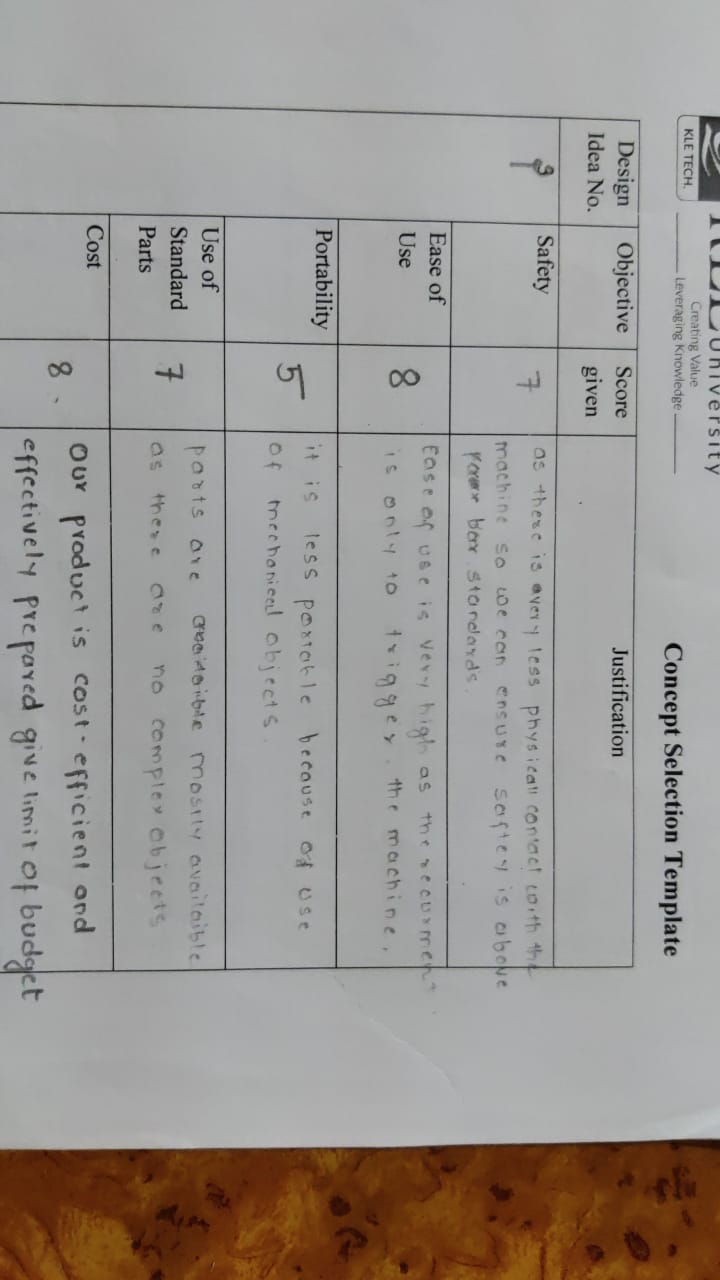 University
Creating Value
Leveraging Knowledge
KLE TECH.
Concept Selection Template
Design
Idea No.
Objective
Score
given
Justification
Safety
7
as there is avery less physicall contact with the
machine so we can ensure saftey is above
bar standards.
Ease of
Use
8
Ease of use is very high as the
is only to trigger the machine.
Portability
5
it is less portable because of use
of mechanical objects.
Use of
Standard
Parts
7
parts are mostly availaible
as there are no complex objects
Cost
8
our product is cost-efficient and
effectively prepared give limit of budget